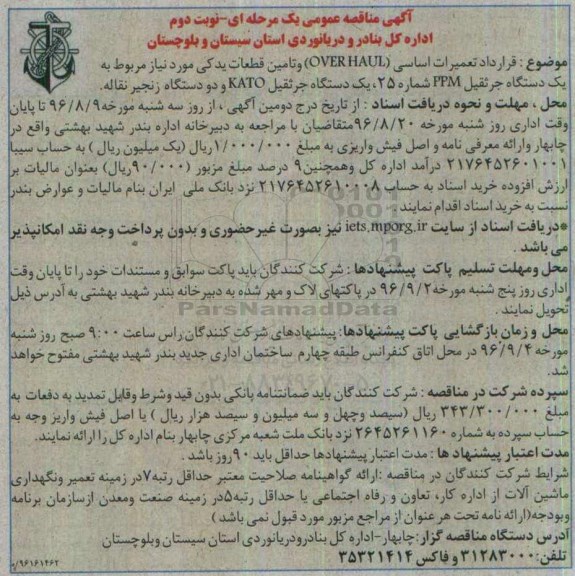 آگهی مناقصه عمومی یک مرحله ای-نوبت دوم
اداره کل بنادر و دریانوردی استان سیستان و بلوچستان
موضوع : قرارداد تعمیرات اساسی (OVER HAUL) وتامین قطعات یدکی مورد نیاز مربوط به
یک دستگاه جرثقیل PPM شماره ۲۵، یک دستگاه جرثقیل KATO و دو دستگاه زنجیر نقاله.
محل ، مهلت و نحوه دریافت اسناد : از تاریخ درج دومین آگهی ، از روز سه شنبه مورخه ۹۶/۸/۹ تا پایان
وقت اداری روز شنبه مورخه ۹۶/۸/۲۰ متقاضیان با مراجعه به دبیرخانه اداره بندر شهید بهشتی واقع در
چابهار وارائه معرفی نامه و اصل فیش واریزی به مبلغ ۱/۰۰۰/۰۰۰ریال (یک میلیون ریال ) به حساب سیبا
۲۱۷۶۴۵۲۶۰۱۰۰۱ درآمد اداره کل وهمچنین۹ درصد مبلغ مزبور (۹۰/۰۰۰ریال) بعنوان مالیات بر
ارزش افزوده خرید اسناد به حساب ۲۱۷۶۴۵۲۶۱۰۰۰۸ نزد بانک ملی ایران بنام مالیات و عوارض بندر
نسبت به خرید اسناد اقدام نمایند.
*دریافت اسناد از سایت iets.mporg.ir نیز بصورت غیرحضوری و بدون پرداخت وجه نقد امکانپذیر
می باشد .
محل ومهلت تسلیم پاکت پیشنهادها : شرکت کنندگان باید پاکت سوابق و مستندات خود را تا پایان وقت
اداری روز پنج شنبه مورخه۹۶/۹/۲ در پاکتهای لاک و مهر شده به دبیرخانه بندر شهید بهشتی به آدرس ذیل
تحویل نمایند .
ParsNamadData
محل و زمان بازگشایی پاکت پیشنهادها: پیشنهادهای شرکت کنندگان راس ساعت ۹:۰۰ صبح روز شنبه
مورخه ۹۶/۹/۴ در محل اتاق کنفرانس طبقه چهارم ساختمان اداری جدید بندر شهید بهشتی مفتوح خواهد
شد.
سپرده شرکت در مناقصه : شرکت کنندگان باید ضمانتنامه بانکی بدون قید وشرط وقابل تمدید به دفعات به
مبلغ ۳۴۳/۳۰۰/۰۰۰ ریال (سیصد وچهل و سه میلیون و سیصد هزار ریال ) یا اصل فیش واریز وجه به
حساب سپرده به شماره ۲۶۴۵۲۶۱۱۶۰ نزد بانک ملت شعبه مرکزی چابهار بنام اداره کل را ارائه نمایند.
مدت اعتبار پیشنهاد ها : مدت اعتبار پیشنهادها حداقل باید ۹۰روز باشد .
شرایط شرکت کنندگان در مناقصه :ارائه گواهینامه صلاحیت معتبر حداقل رتبه۷در زمینه تعمیر ونگهداری
ماشین آلات از اداره کار، تعاون و رفاه اجتماعی یا حداقل رتبه۵در زمینه صنعت ومعدن ازسازمان برنامه
وبودجه(ارائه نامه تحت هر عنوان از مراجع مزبور مورد قبول نمی باشد )
آدرس دستگاه مناقصه گزار:چابهار-اداره کل بنادرودریانوردی استان سیستان وبلوچستان
تلفن:۳۱۲۸۳۰۰۰ و فاکس ۳۵۳۲۱۴۱۴
۹۶۱۶۱۴۶۲/